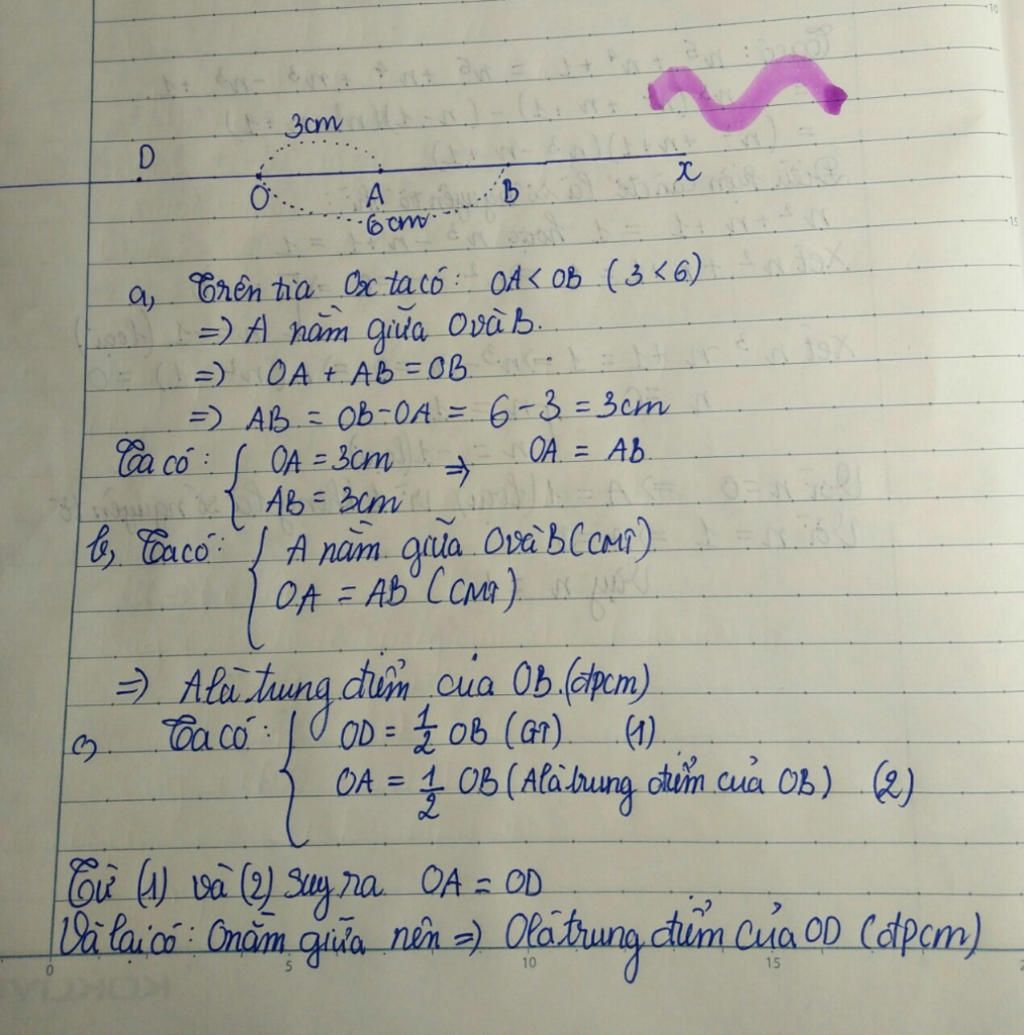 3cm
D
O A B x
6cm
a, Trên tia Ox ta có: OA < OB (3 < 6)
=> A nằm giữa O và B.
=> OA + AB = OB
=> AB = OB - OA = 6 - 3 = 3cm
Ta có: { OA = 3cm => OA = AB
AB = 3cm
b, Ta có: { A nằm giữa O và B (CMT)
OA = AB (CMT)
=> A là trung điểm của OB. (đpcm)
c, Ta có: { OD = 1/2 OB (GT) (1)
OA = 1/2 OB (A là trung điểm của OB) (2)
Từ (1) và (2) suy ra OA = OD
Và lại có: O nằm giữa nên => O là trung điểm của OD (đpcm)
0 5 10 15